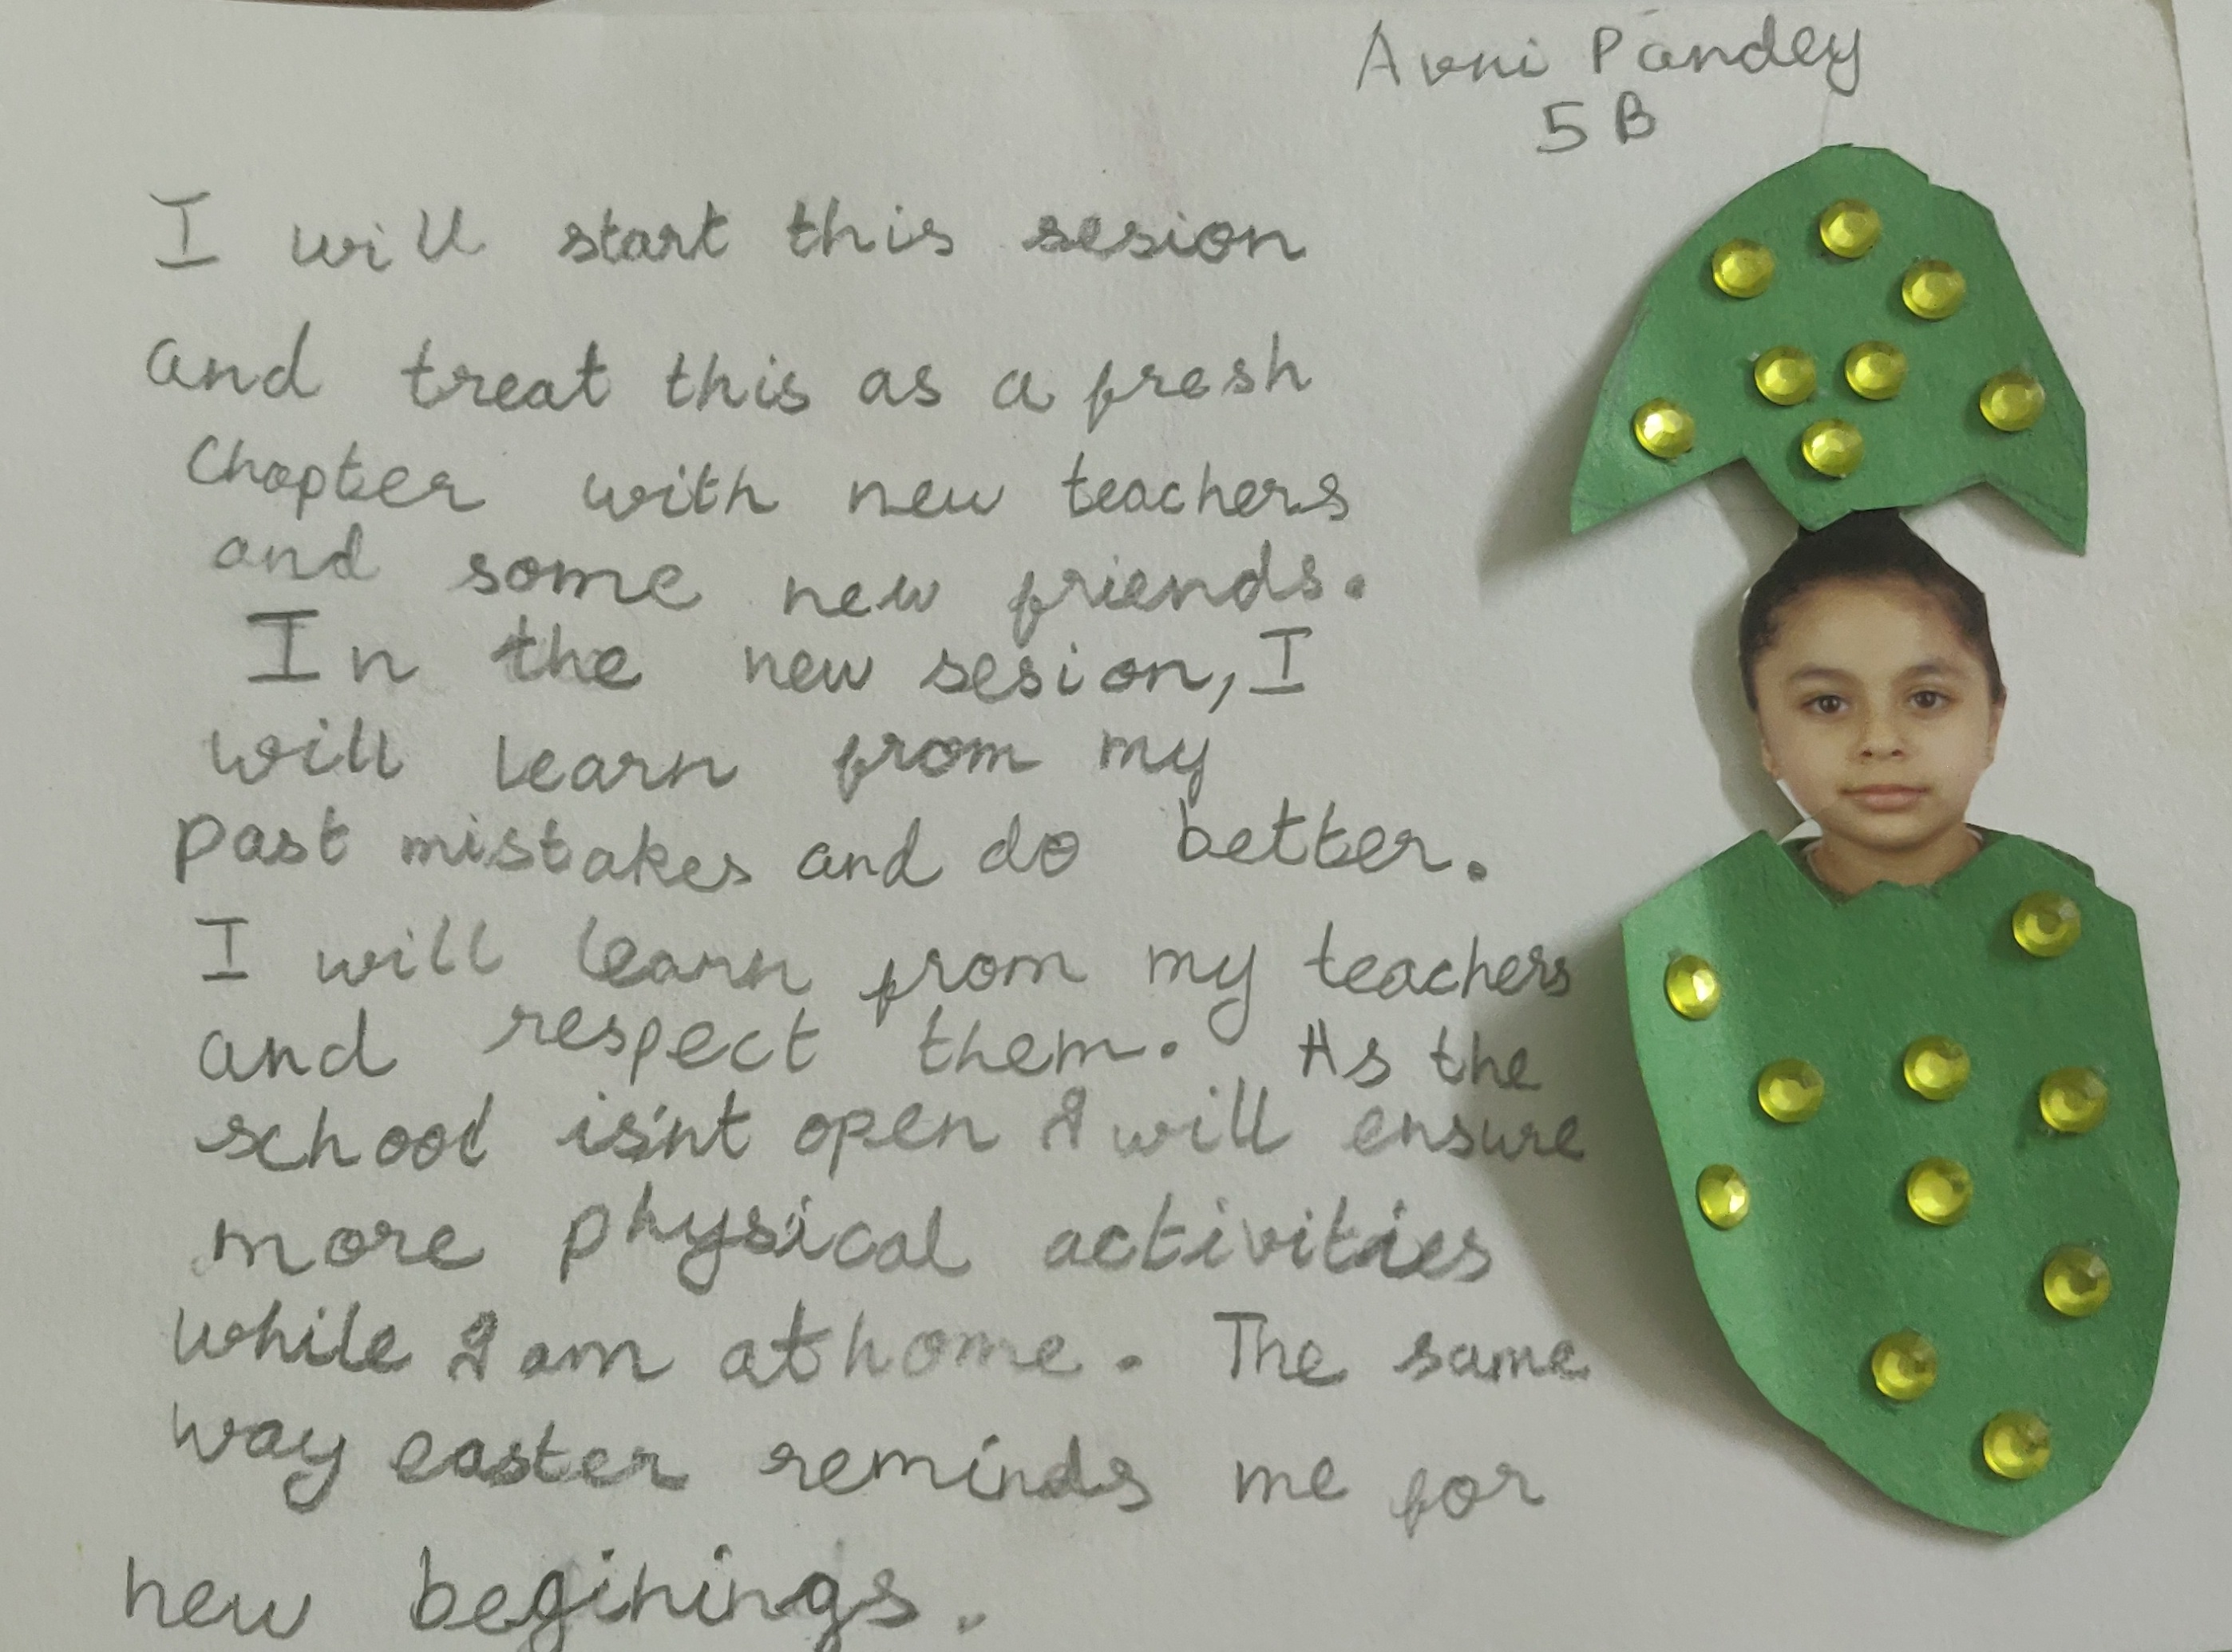 Avni Pandey
5 B
I will start this sesion
and treat this as a fresh
Chapter with new teachers
and some new friends.
In the new sesion, I
will learn from my
past mistakes and do better.
I will learn from my teachers
and respect them. As the
school is'nt open I will ensure
more physical activities
while I am at home. The same
way easter reminds me for
new beginings.